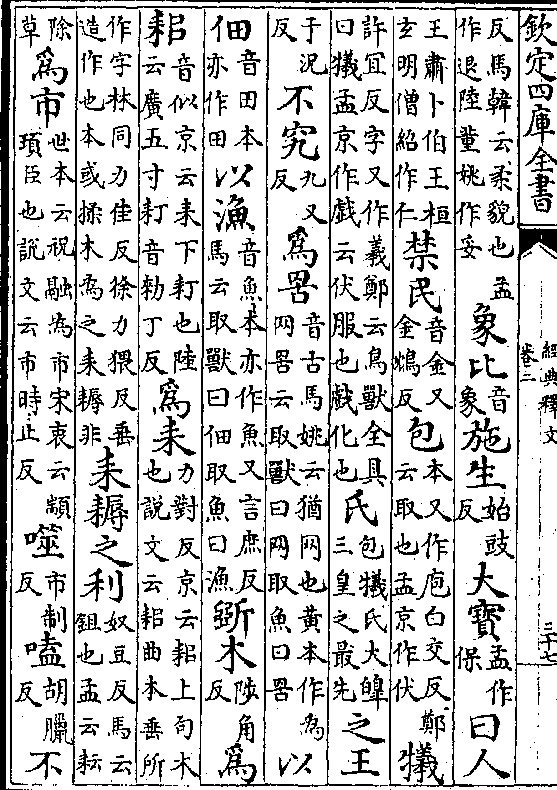 欽定四庫全書
經典釋文
卷二
三十七
反馬韓云柔貌也孟作退陸董姚作妥象比音象施生始豉反大寶孟作保曰人
王肅卜伯王桓玄明僧紹作仁禁民音金又金鴆反包本又作庖白交反鄭云取也孟京作伏犧
許宜反字又作羲鄭云鳥獸全具曰犧孟京作戱云伏服也戱化也氏包犧氏大皥三皇之最先之王
于況反不究九又反為罟音古馬姚云猶网也黃本作為网罟云取獸曰网取魚曰罟以
佃音田本亦作田以漁音魚本亦作魚又言庶反馬云取獸曰佃取魚曰漁斵木陟角反為
耜音似京云耒下耓也陸云廣五寸耓音勑丁反為耒力對反京云耜上句木也說文云耜曲木垂所
作字林同力隹反徐力猥反垂造作也本或揉木為之耒耨非耒耨之利奴豆反馬云鉏也孟云耘
除草為市世本云祝融為市宋衷云顓頊臣也說文云市時止反噬市制反嗑胡臘反不